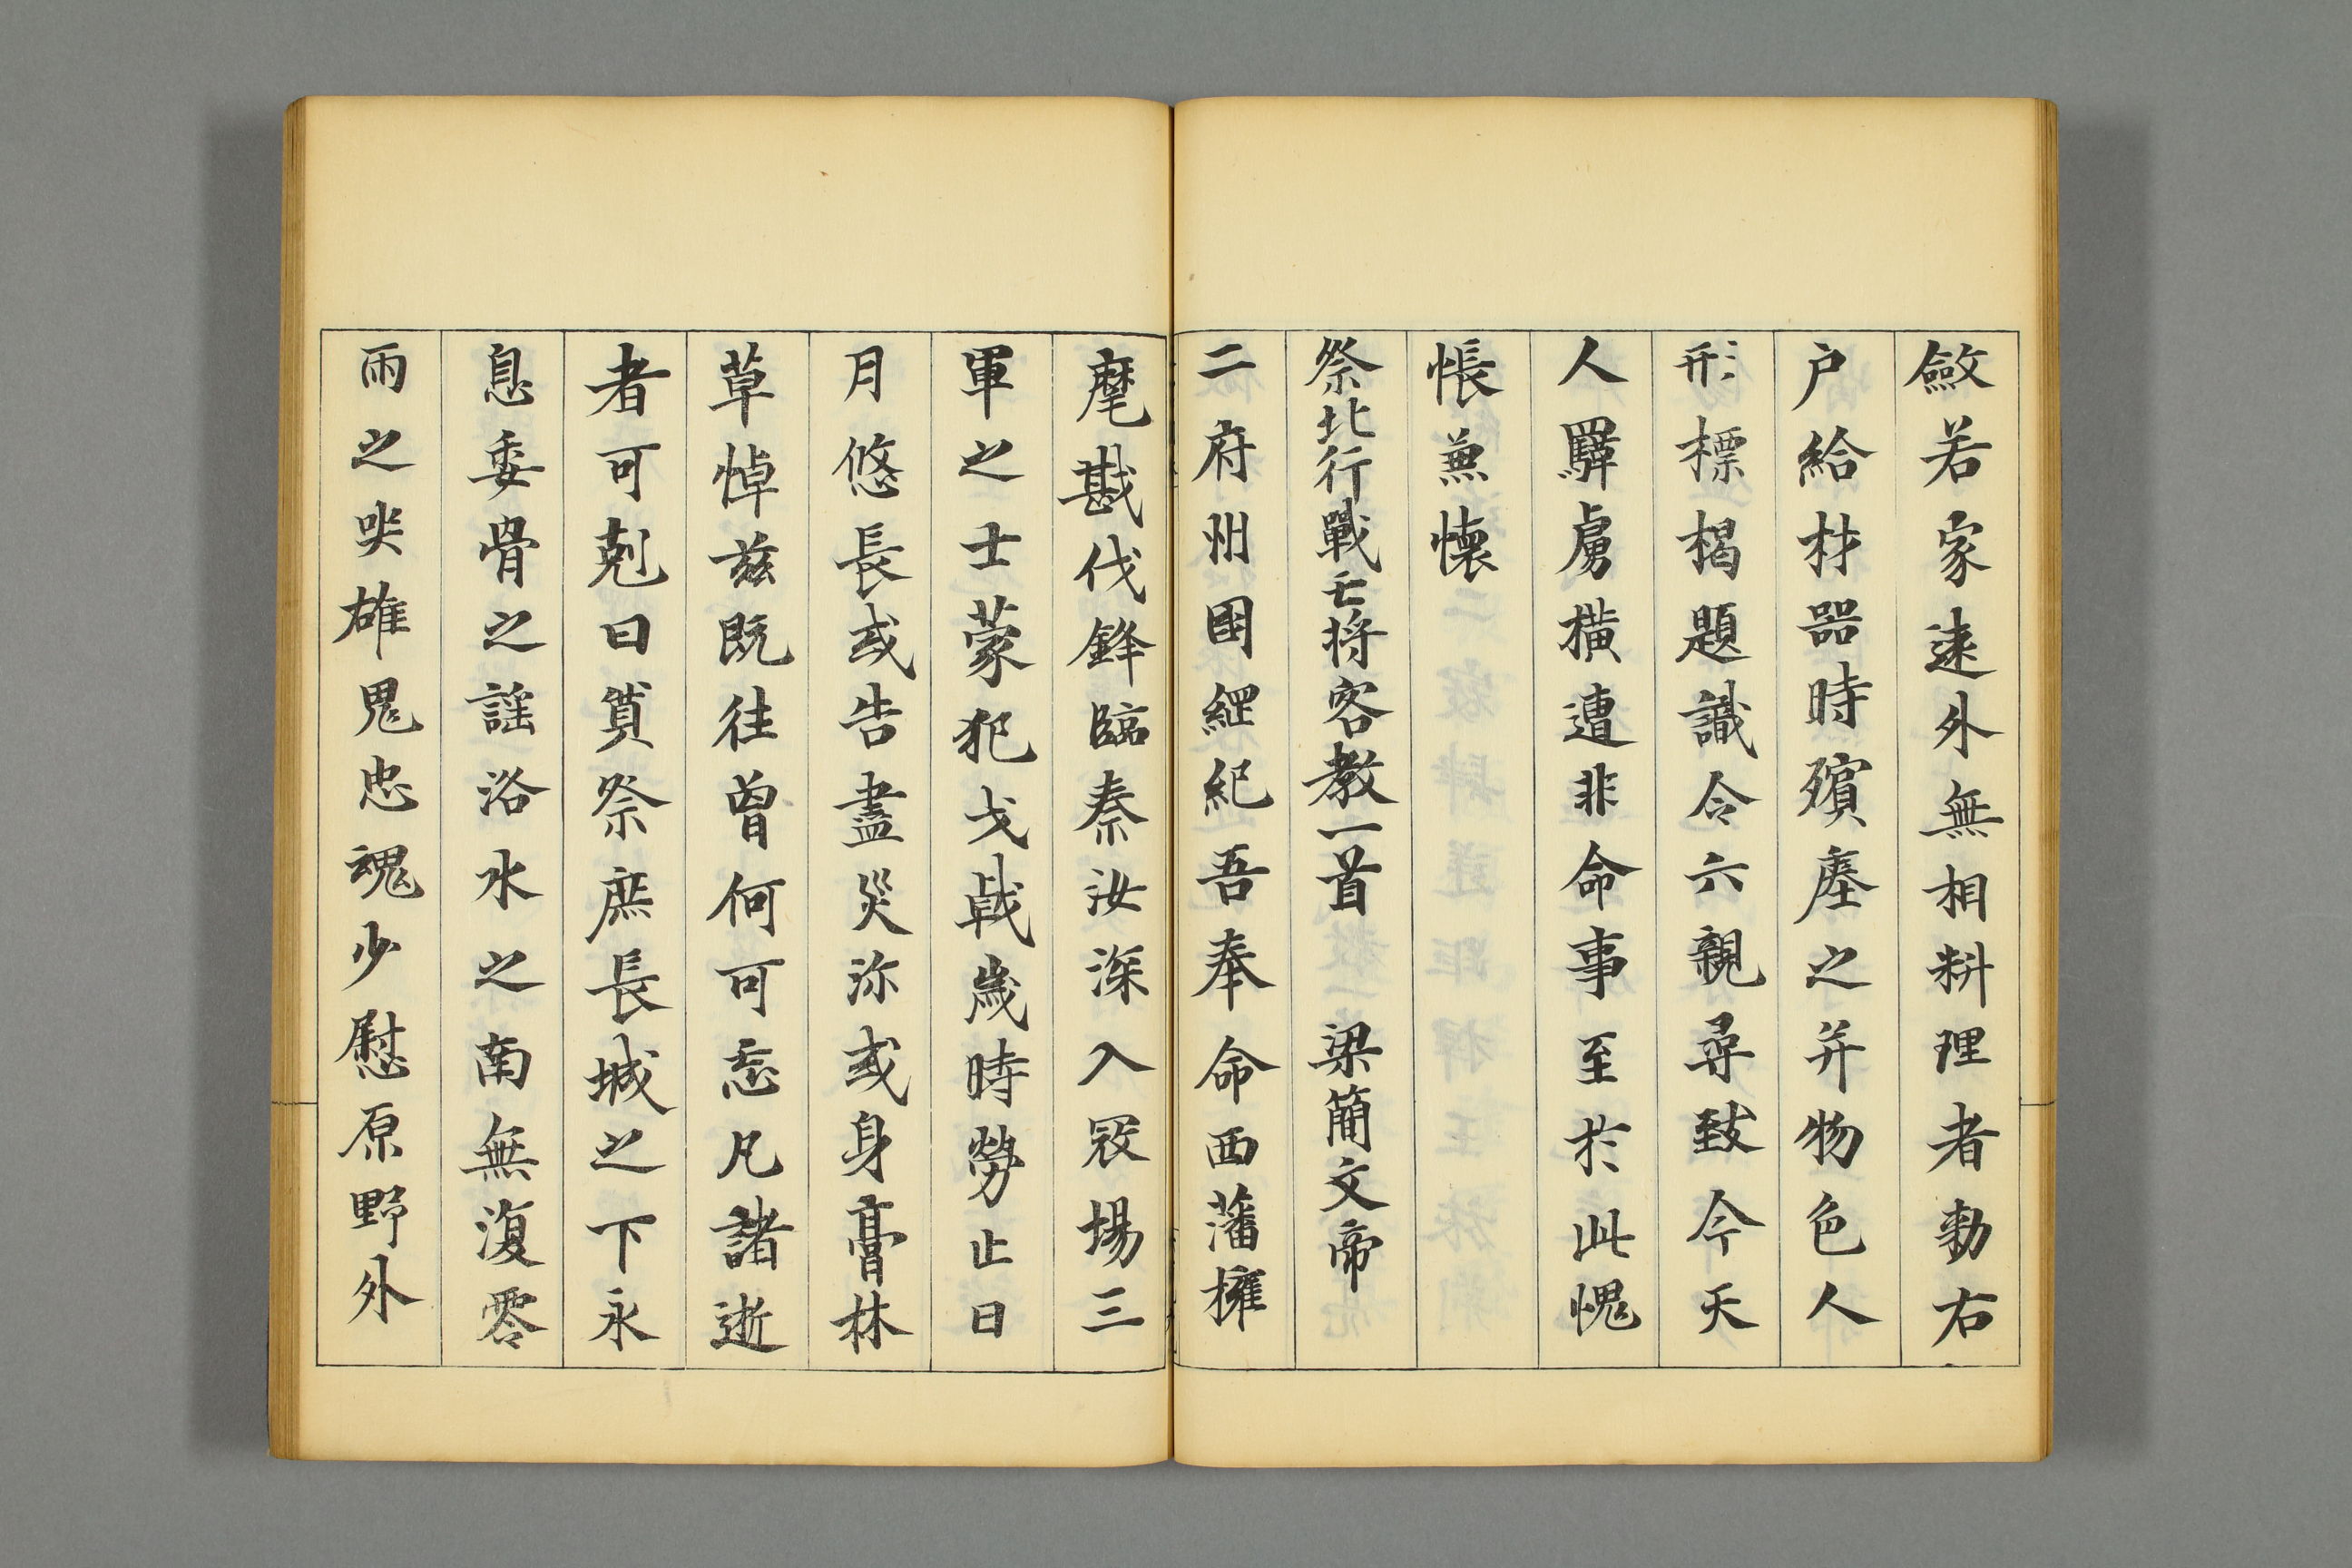 斂若家遠外無相料理者勅右
户給材器時殯塺之并物色人
形標楬題識令六親尋致今天
人羈虜横遭非命事至扵此愧
悵兼懷
祭北行戰亡将客教一首 梁簡文帝
二府州國綱紀吾奉命西藩擁
麾戡伐鋒臨秦汝深入冦場三
軍之士蒙犯戈戟歲時勞止日
月悠長或告盡災沴或身膏林
草悼兹既往曾何可忘凡諸逝
者可剋日賃祭庶長城之下永
息委骨之謡洛水之南無復零
雨之哭雄鬼忠魂少慰原野外